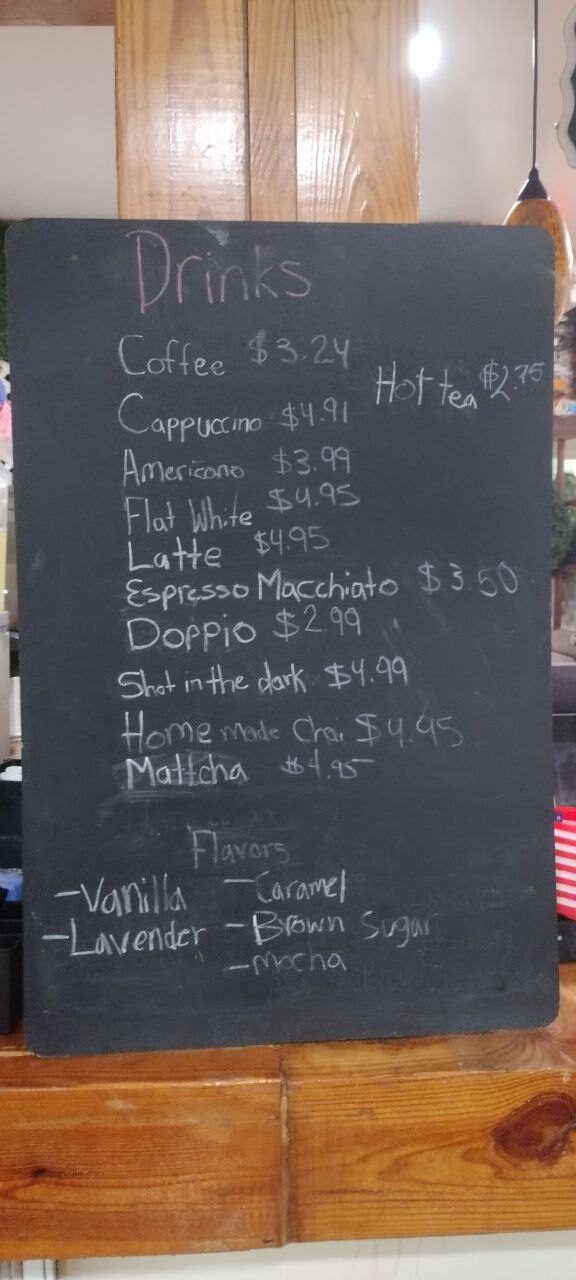 Drinks
Coffee $3.24
Hot tea $2.75
Cappuccino $4.91
Americano $3.99
Flat White $4.95
Latte $4.95
Espresso Macchiato $3.50
Doppio $2.99
Shot in the dark $4.99
Home made Chai $4.45
Mattcha $4.95
Flavors
-Vanilla -Caramel
-Lavender -Brown Sugar
-Mocha